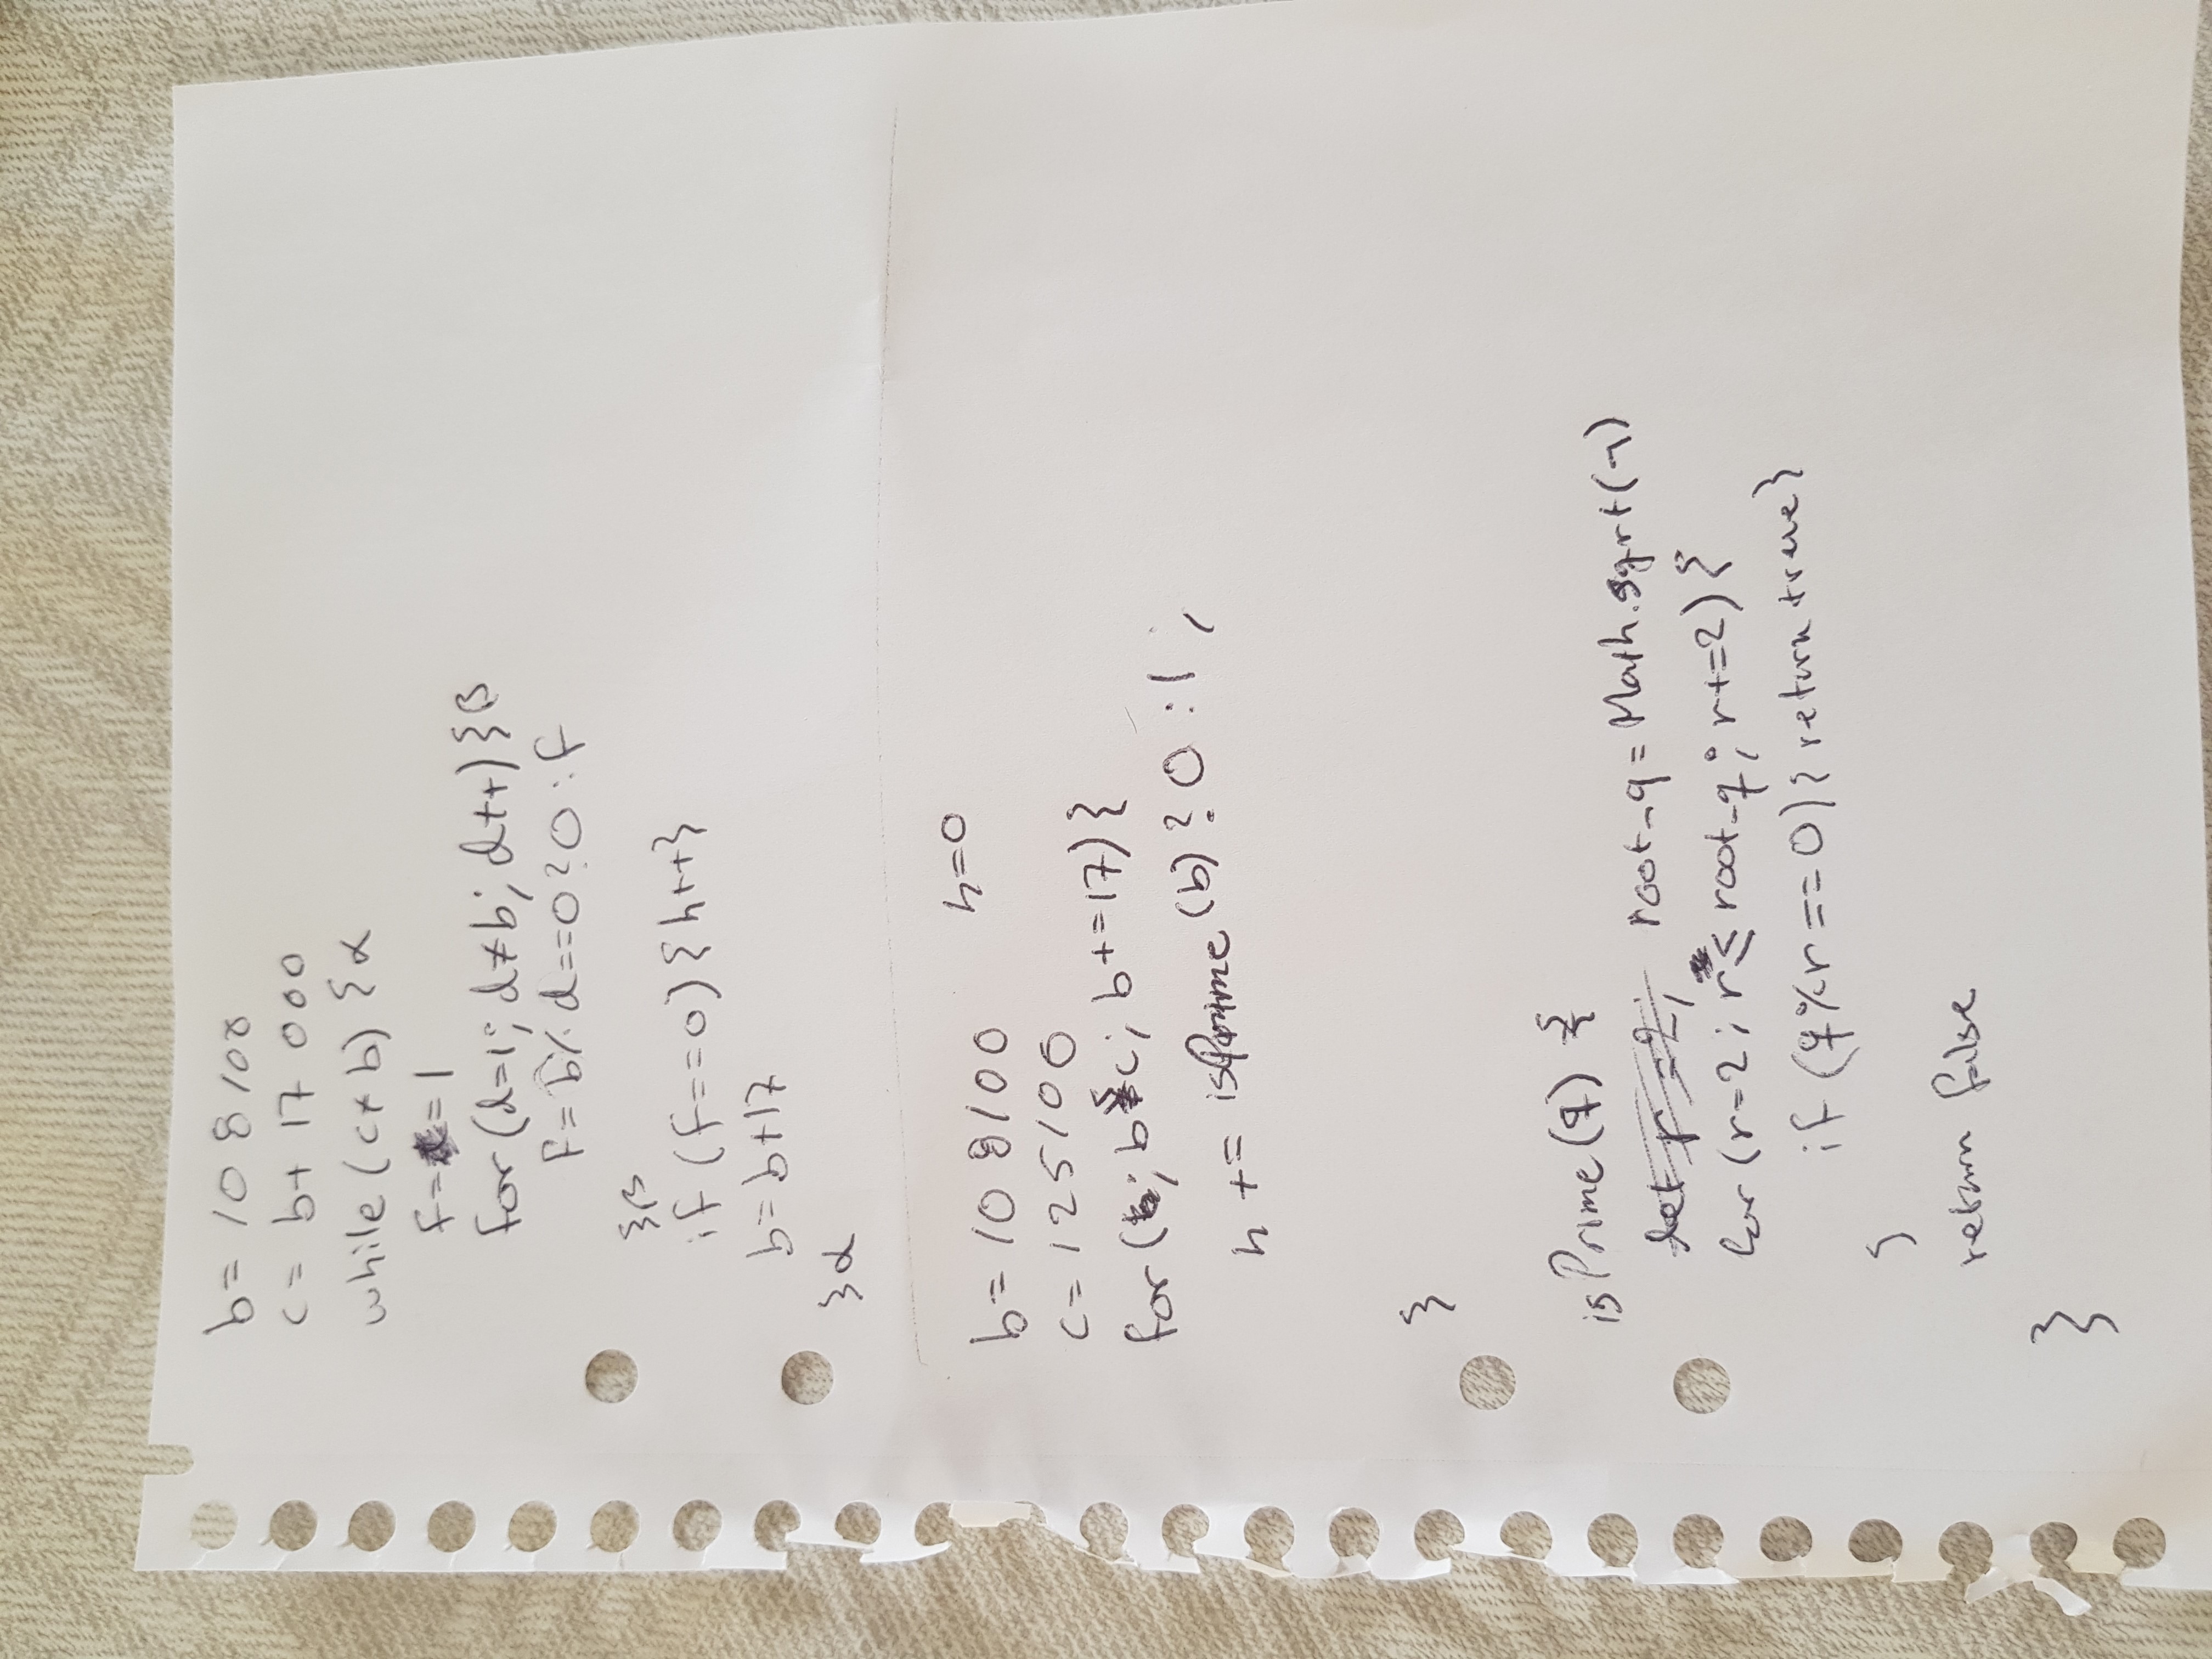 b= 108100
c= b+ 17 000
while (c≠b) {α
f= =1
for (d=1; d≠b; d++) {β
f= b% d==0?0:f
}β
if (f==0) {h++}
b=b+17
}α
b= 108100 h=0
c= 125100
for ( ; b≤c; b+=17) {
h += isPrime (b) ? 0 :1 ;
}
isPrime(q) {
let r =2; root_q = Math.sqrt(q)
for (r=2; r≤ root_q; r+=2) {
if (q%r==0) { return true}
}
return false
}